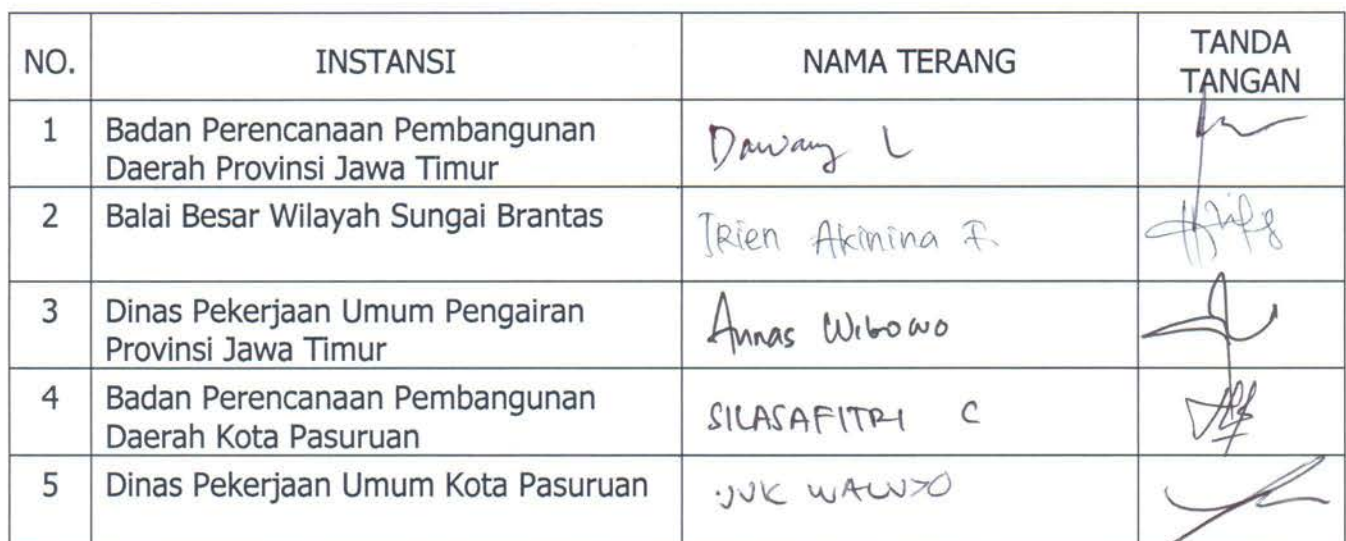 NO. INSTANSI NAMA TERANG TANDA
TANGAN
1 Badan Perencanaan Pembangunan
Daerah Provinsi Jawa Timur
Dawang L
2 Balai Besar Wilayah Sungai Brantas
Irien Akinina F.
3 Dinas Pekerjaan Umum Pengairan
Provinsi Jawa Timur
Annas Wibowo
4 Badan Perencanaan Pembangunan
Daerah Kota Pasuruan
SILASAFITRI C
5 Dinas Pekerjaan Umum Kota Pasuruan
WALUYO